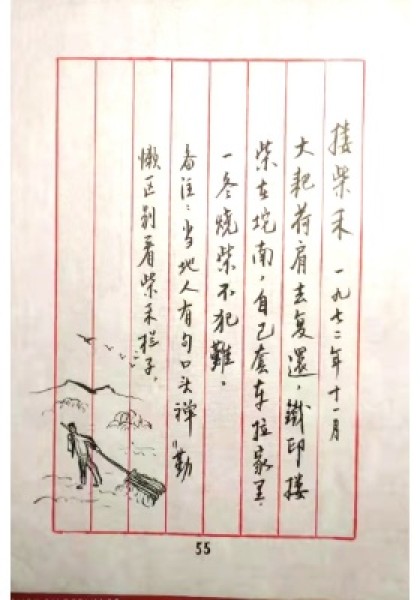 搂柴禾 一九七二年十一月
大耙荷肩去复還，鐵印搂
柴在垞南，自己套车拉家里
一冬烧柴不犯難。
备注：当地人有句口头禅“勤
懒区别看柴禾栏子，
55